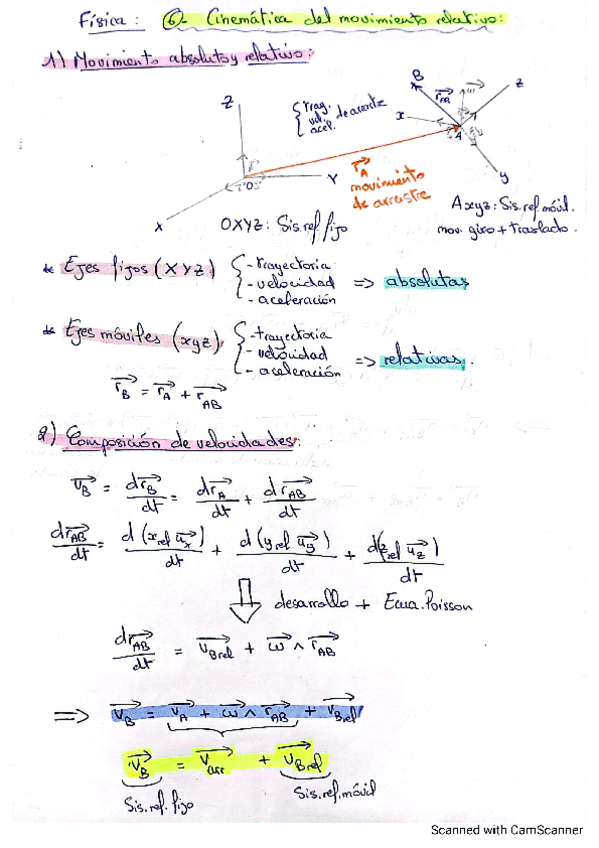 Física: 6.- Cinemática del movimiento relativo:
1) Movimiento absoluto y relativo:
Z
{ tray. vel. acel. de arrastre
B
r_AB
ω
z
x
A
y
r_A
movimiento de arrastre
O
Y
X
OXYZ: Sis. ref fijo
Axyz: Sis. ref. móvil.
mov. giro + traslado.
* Ejes fijos (XYZ) { - trayectoria - velocidad - aceleración => absolutas
* Ejes móviles (xyz) { - trayectoria - velocidad - aceleración => relativas.
r_B = r_A + r_AB
2) Composición de velocidades:
v_B = dr_B/dt = dr_A/dt + dr_AB/dt
dr_AB/dt = d(x_rel u_x)/dt + d(y_rel u_y)/dt + d(z_rel u_z)/dt
⇓ desarrollo + Ecua. Poisson
dr_AB/dt = v_Brel + ω ∧ r_AB
=> v_B = v_A + ω ∧ r_AB + v_Brel
v_B = v_arr + v_Brel
Sis. ref. fijo
Sis. ref. móvil
Scanned with CamScanner